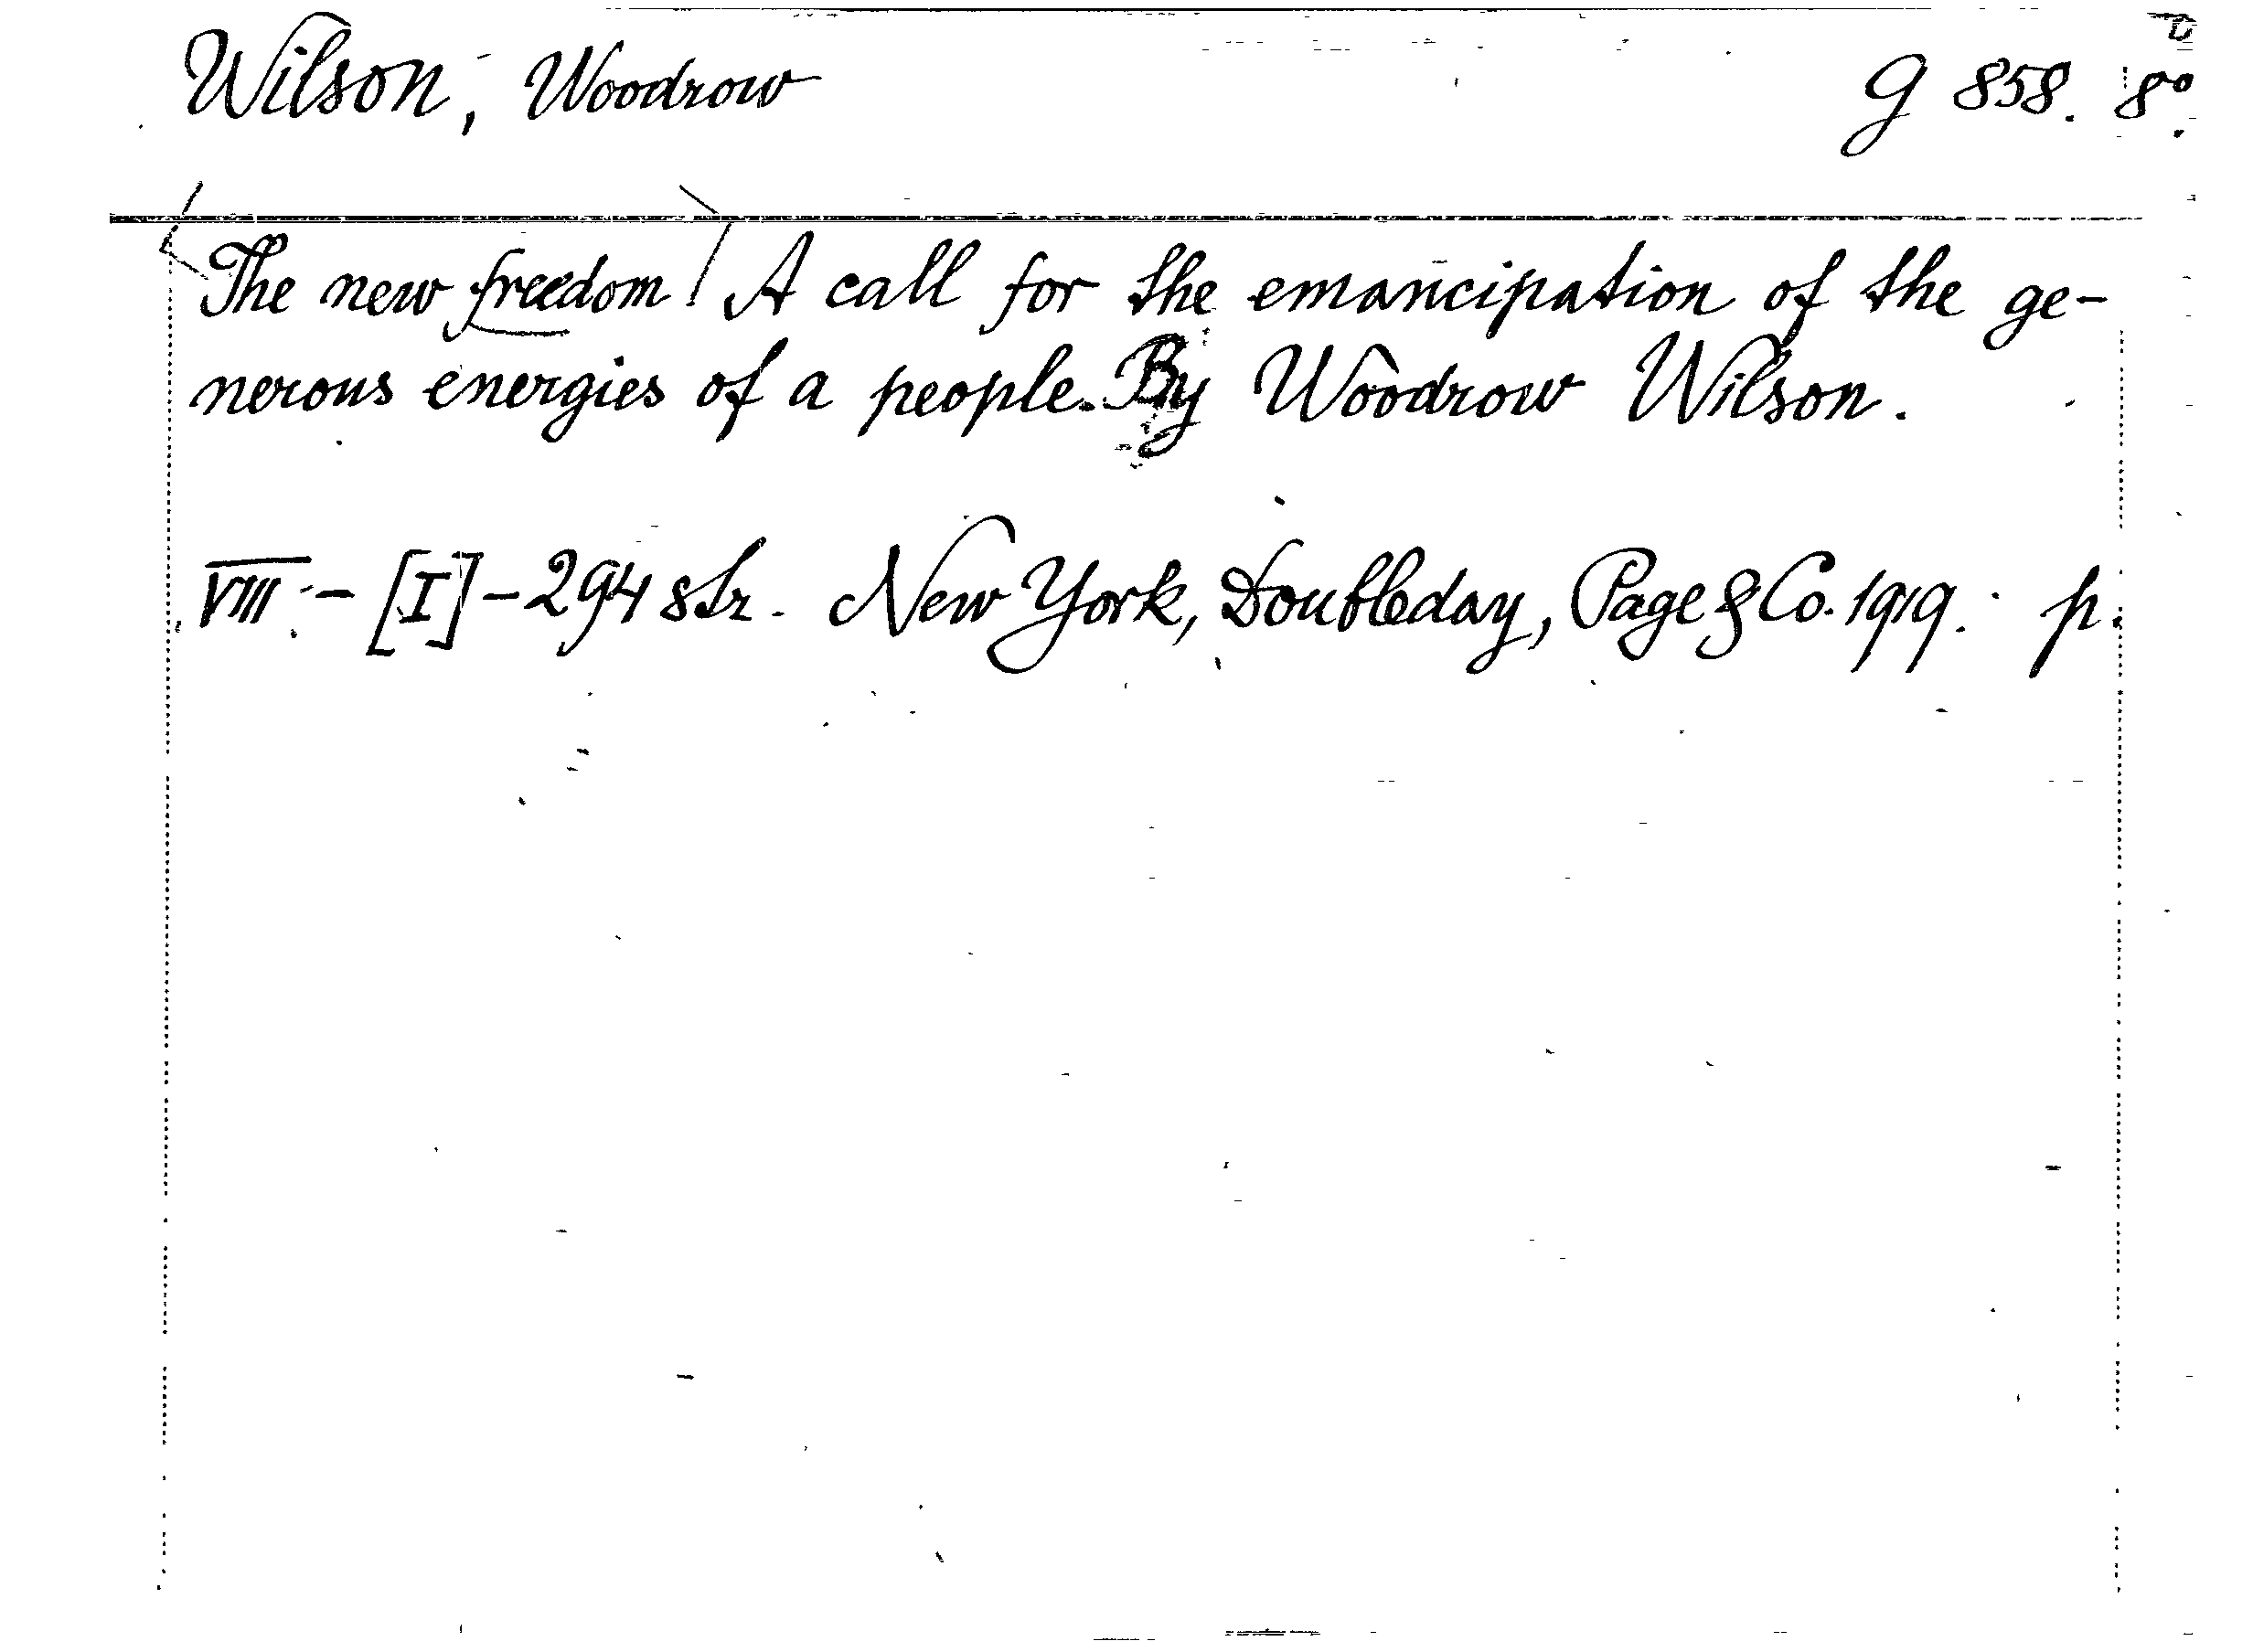 Wilson, Woodrow
g 858. 8º.
The new freedom / A call for the emancipation of the ge-
nerous energies of a people. By Woodrow Wilson.
VIII - [I] - 294 str. New York, Doubleday, Page & Co. 1919. p.